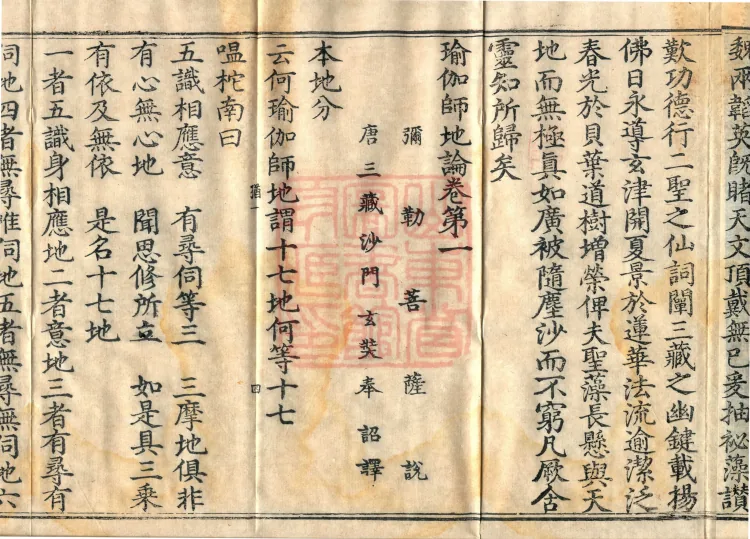 魏兩韋英旣睹天文頂戴無已爰抽祕藻讃
歎功德行二聖之仙詞闡三藏之幽鍵載楊
佛日永導玄津開夏景於蓮華法流逾潔泛
春光於貝葉道樹増榮俾夫聖藻長懸與天
地而無極眞如廣被隨塵沙而不窮凡厥含
靈知所歸矣
瑜伽師地論卷第一
彌勒菩薩說
唐三藏沙門玄奘奉詔譯
本地分
云何瑜伽師地謂十七地何等十七
猶一 四
嗢柁南曰
五識相應意 有尋伺等三 三摩地俱非
有心無心地 聞思修所立 如是具三乘
有依及無依 是名十七地
一者五識身相應地二者意地三者有尋有
伺地四者無尋唯伺地五者無尋無伺地六